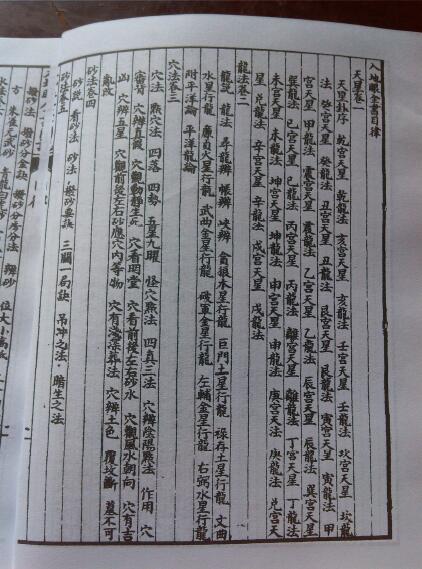 入地眼全書目錄
天星卷一
天星卦序 乾宮天星 乾龍法 亥宮天星 亥龍法 壬宮天星 壬龍法 坎宮天星 坎龍
法 癸宮天星 癸龍法 丑宮天星 丑龍法 艮宮天星 艮龍法 寅宮天星 寅龍法 甲
宮天星 甲龍法 震宮天星 震龍法 乙宮天星 乙龍法 辰宮天星 辰龍法 巽宮天星
巽龍法 巳宮天星 巳龍法 丙宮天星 丙龍法 離宮天星 離龍法 丁宮天星 丁龍法
未宮天星 未龍法 坤宮天星 坤龍法 申宮天星 申龍法 庚宮天星 庚龍法 兌宮天
星 兌龍法 辛宮天星 辛龍法 戌宮天星 戌龍法
龍法卷二
龍說 龍法 尋龍辨 帳辨 峽辨 貪狼木星行龍 巨門土星行龍 祿存土星行龍 文曲
水星行龍 廉貞火星行龍 武曲金星行龍 破軍金星行龍 左輔金星行龍 右弼水星行龍
附平洋論 平洋龍論
穴法卷三
穴法 點穴法 四落 四勢 五星九曜 怪穴點法 四真三法 穴辨陰陽點法 作用 穴
穴辨真假 穴觀動靜生死 穴看明堂 穴看前後左右砂水 穴觀風水朝向 穴有吉
凶 穴辨五星 穴觀前後左右砂應穴內等物 穴有 葬法 穴辨土色 覆坟斷 墓不可
氣改
砂法卷四
砂說 看砂法 砂法 撥砂要訣 三關一局訣 吊冲之法 暗生之法
砂法卷五
撥砂法 撥砂分房分法 辨砂
方
位大小高低
二